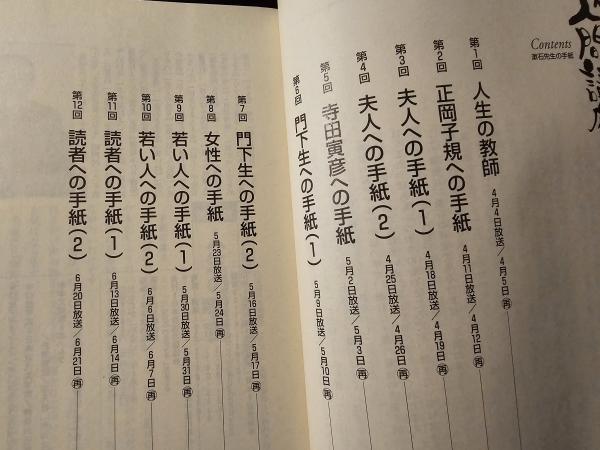 Contents
漱石先生の手紙
第1回 人生の教師 4月4日放送/4月5日再
第2回 正岡子規への手紙 4月11日放送/4月12日再
第3回 夫人への手紙(1) 4月18日放送/4月19日再
第4回 夫人への手紙(2) 4月25日放送/4月26日再
第5回 寺田寅彦への手紙 5月2日放送/5月3日再
第6回 門下生への手紙(1) 5月9日放送/5月10日再
第7回 門下生への手紙(2) 5月16日放送/5月17日再
第8回 女性への手紙 5月23日放送/5月24日再
第9回 若い人への手紙(1) 5月30日放送/5月31日再
第10回 若い人への手紙(2) 6月6日放送/6月7日再
第11回 読者への手紙(1) 6月13日放送/6月14日再
第12回 読者への手紙(2) 6月20日放送/6月21日再